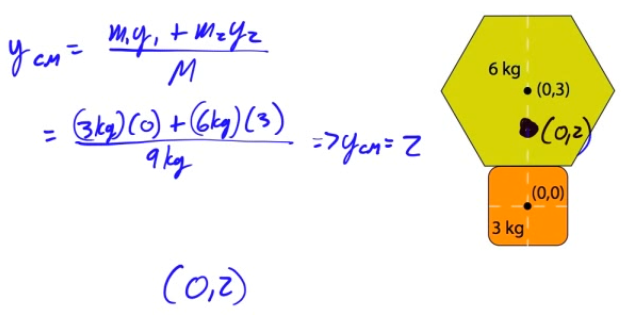 y_CM = (m₁y₁ + m₂y₂) / M
= ((3kg)(0) + (6kg)(3)) / 9kg => y_CM = 2
(0,2)
6 kg
(0,3)
(0,2)
(0,0)
3 kg